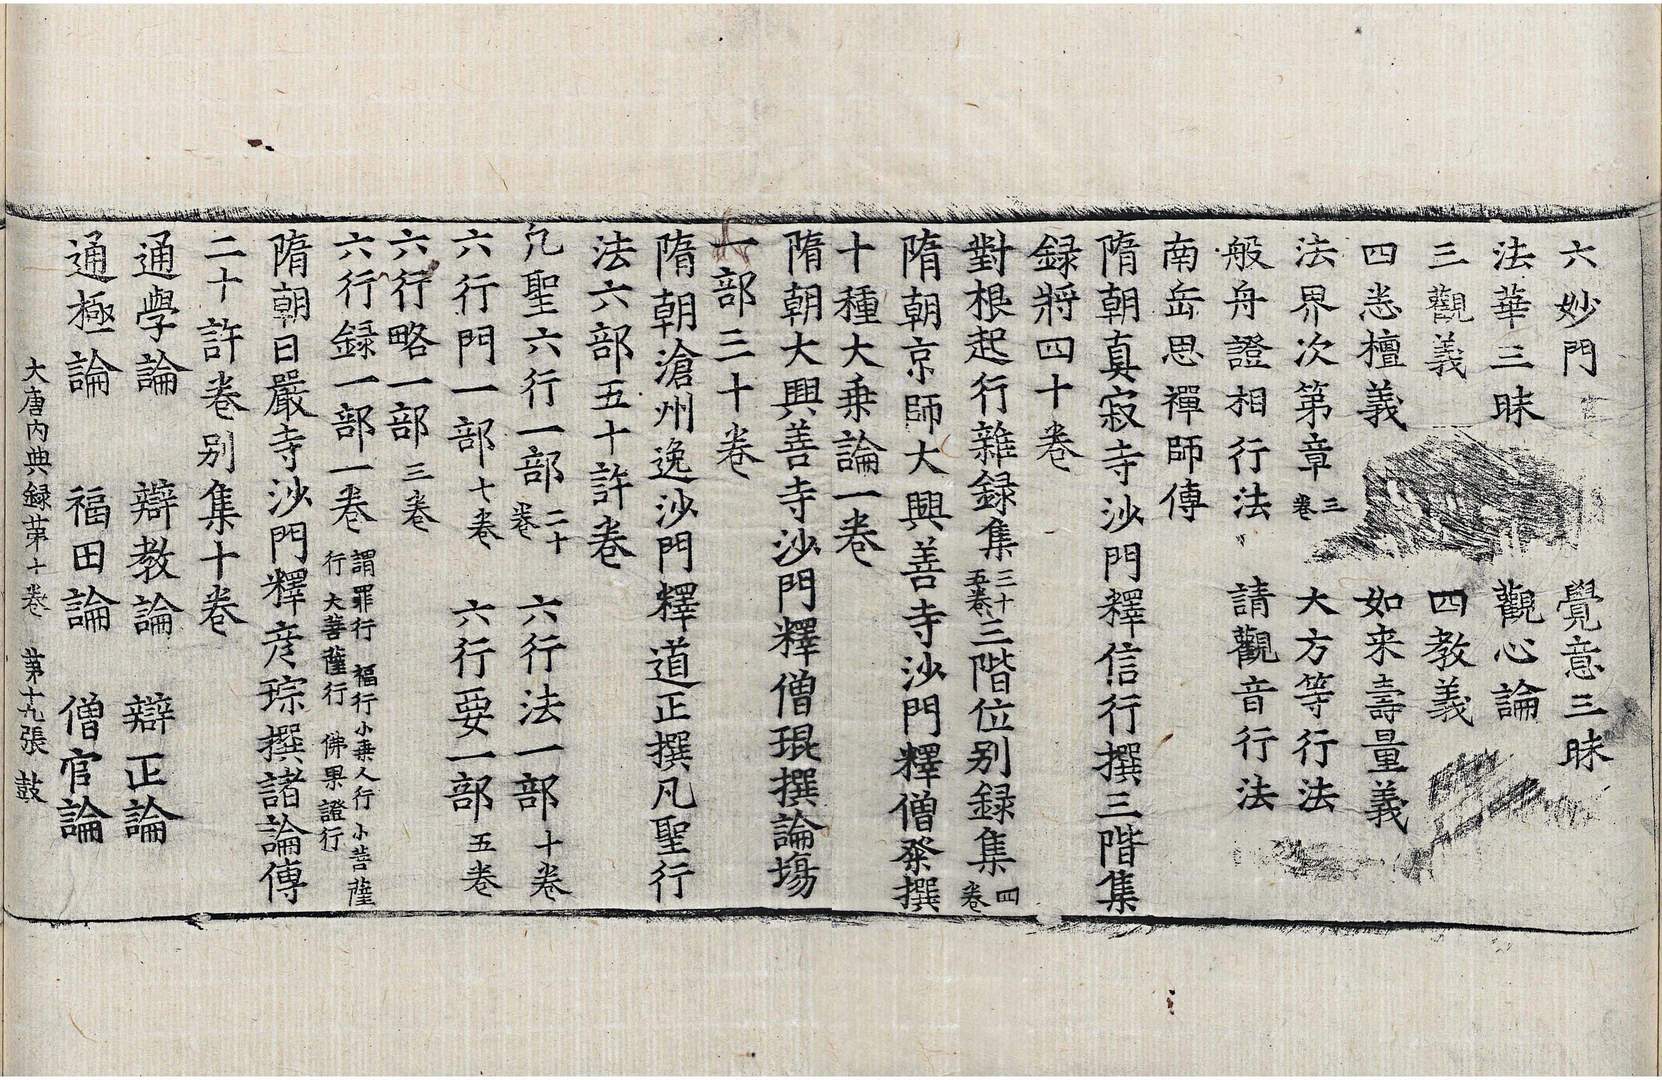 六妙門　覺意三昧
法華三昧　觀心論
三觀義　四教義
四悉檀義　如来壽量義
法界次第章三卷　大方等行法
般舟證相行法　請觀音行法
南岳思禪師傳
隋朝真寂寺沙門釋信行撰三階集
録將四十卷
對根起行雜録集三十五卷三階位别録集四卷
隋朝京師大興善寺沙門釋僧粲撰
十種大乗論一卷
隋朝大興善寺沙門釋僧琨撰論塲
一部三十卷
隋朝滄州逸沙門釋道正撰凡聖行
法六部五十許卷
凡聖六行一部二十卷　六行法一部十卷
六行門一部七卷　六行要一部五卷
六行略一部三卷
六行録一部一卷謂罪行　福行小乗人行　小菩薩行　大菩薩行　佛果證行
隋朝日嚴寺沙門釋彦琮撰諸論傳
二十許卷别集十卷
通學論　辯教論　辯正論
通極論　福田論　僧官論
大唐内典録第十卷　第十九張　鼓